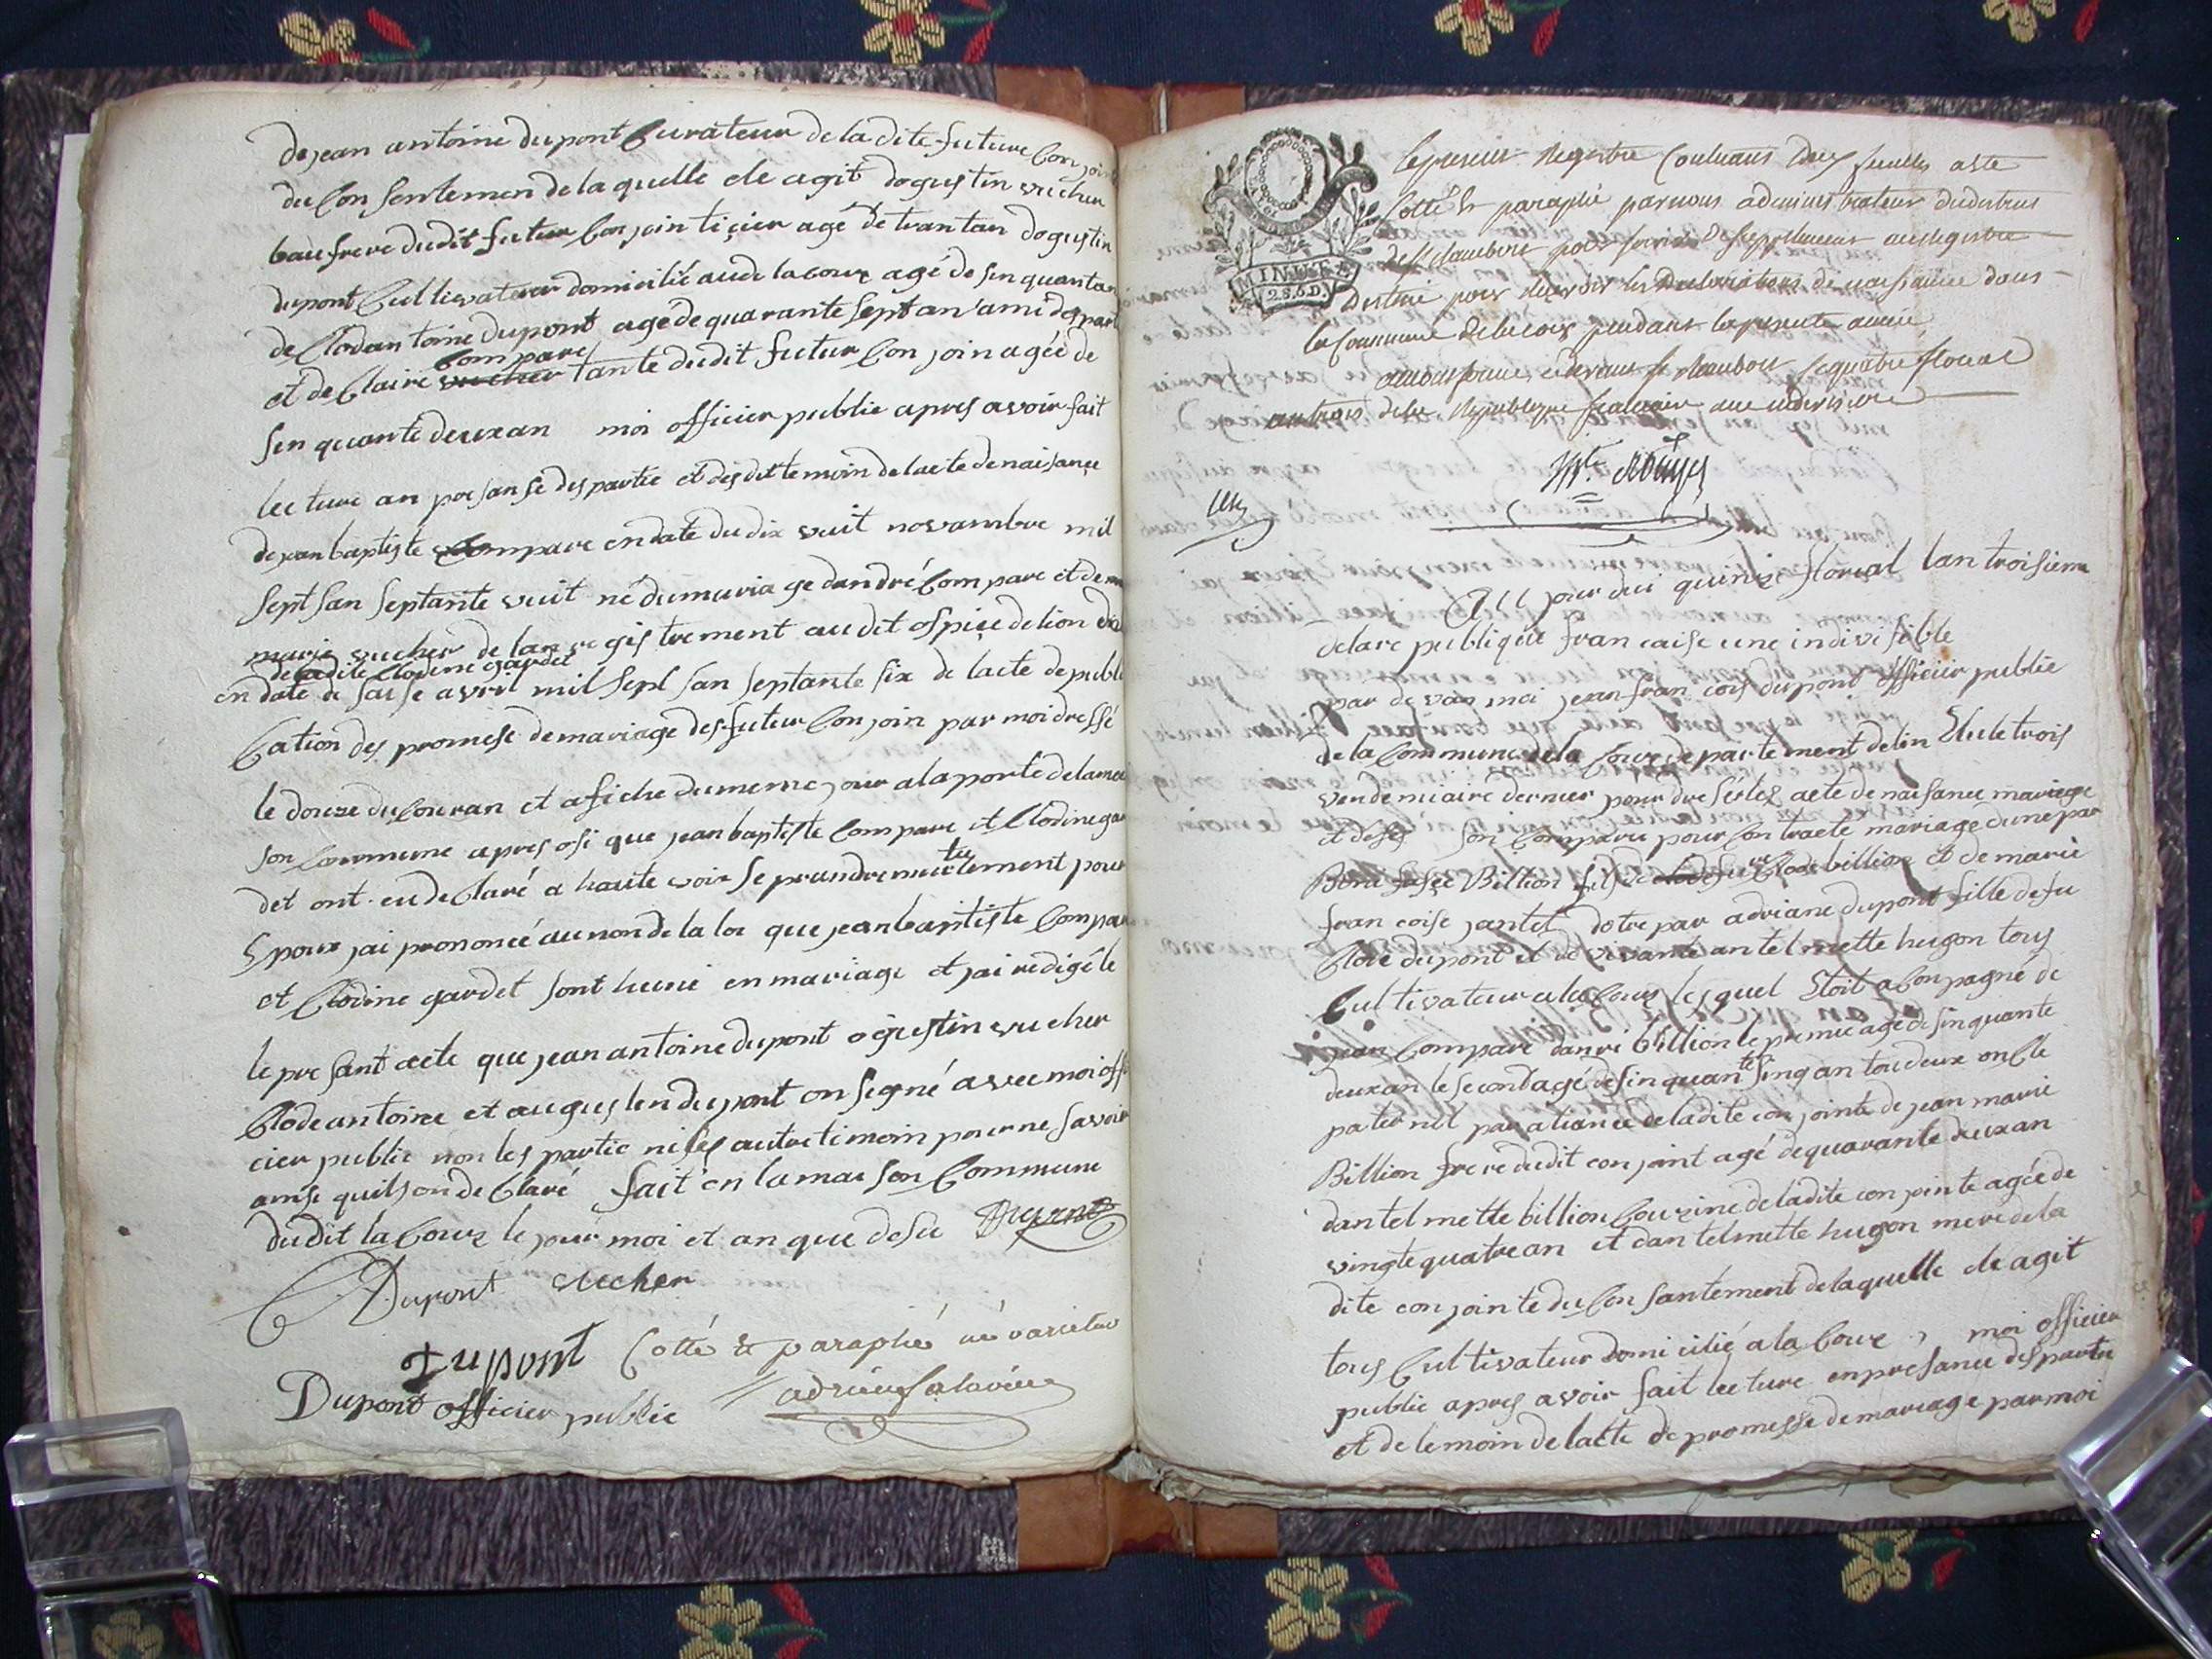 de jean antoine dupont Curateur de la dite future Conjoin
du Consentemen de la quelle ele agit dogustin vucher
baufrere dudit futur Conjoin ticier agé de trantan dogustin
dupont Cultievateur domicilié au de la couz agé de sinquantan
de Clodantoine dupont agé de quarante sept an ami des part
compare
et de Claire vucher tante dudit futur Conjoin agée de
sen quante deuxan moi officier public apres avoir fait
lecture an presanse des partie et des dit temoin de lacte de naisance
de jean baptiste Compare en date du dix vuit novambre mil
sept san septante vuit né du mariage dandré Compare et de
marie vucher de lanregistrement audit ospice de lion
de ladite Clodine gardet
en date de saise avril mil sept san septante six de lacte de publi
Cation des promese de mariage des futur Conjoin par moi dressé
le douze du Couran et afiche du meme jour a la porte de la mai
son Commune apres osi que jean baptiste Compare et Clodine gar
tu
det ont eu de Claré a haute voix se prandre muelement pour
Epoux jai prononcé au non de la loi que jean baptiste Compar
et Clodine gardet sont huni en mariage et jai redigé le
le presant acte que jean antoine dupont ogustin vucher
Clode antoine et augusten dupont on segné avec moi offi
cier public non les partie ni les autre timoin pour ne savoir
anse quils on de Claré fait en la maison Commune
dudit la Couz le jour moi et an que desu Dupont
Dupont vucher
Dupont Cotté & paraphé né varietur
Dupont officier public adrien
MINUTE
2.S.6.D.
le present Registre Contenant Deux feuilles a ete
Cotté & paraphé par nous administrateur du district
de St Rambert pour servir de supplement au Registre
Destiné pour recevoir les Declarations de naissance dans
la Commune de la couz pendant la presente année
a St Rambert le quatre floreal
an trois de la Republique francaise une indivisible
Aujourdui quinze floreal lan troisieme
de lare publique francaise une indivisible
par de van moi jean francois dupont officier public
de la Commune de la Couz departement de lin Elu le trois
vendemiaire dernier pour dresé lez acte de naisance mariage
et deses son Comparu pour Contracte mariage dune par
Boniface Billion fils de Clode billion et de marie
francoise jantet dotre par adriane dupont fille de fu
Clode dupont et de vivante antelmette hugon tous
Cultivateur a la Couz lesquel Etoit aConpagné de
jean Compare danri billion le premie agé de sinquante
deux an le second agé de sinquante sinq an toudeux oncle
paternel par aliance de ladite conjointe de jean marie
Billion frere dudit conjoint agé de quarante deux an
dantelmette billion Couzine de ladite conjointe agée de
vingte quatre an et dantelmette hugon mere de la
dite conjointe du Consantement de laquelle ele agit
tous Cultivateur domicilié a la Couz, moi officier
public apres avoir fait lecture en presance des partie
et de temoin de lacte de promesse de mariage par moi